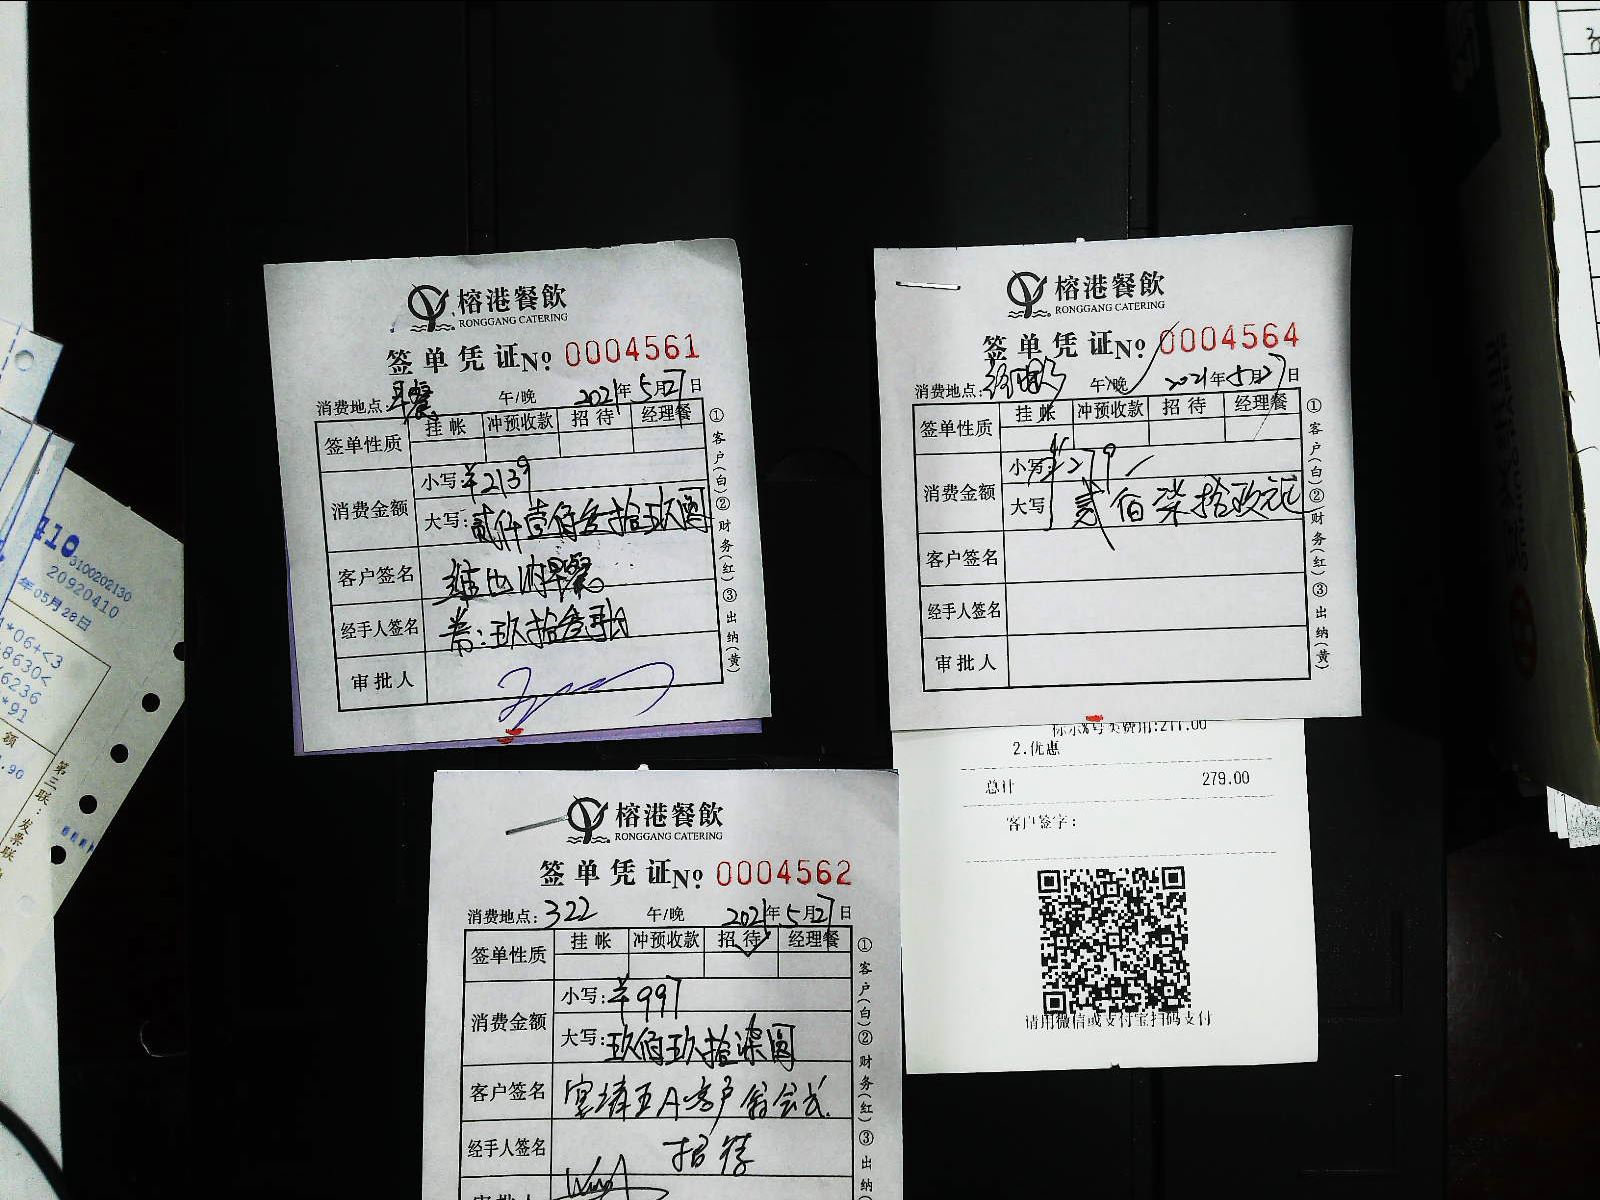 榕港餐飲
RONGGANG CATERING
签单凭证 No 0004561
消费地点: 早餐 午/晚 2021年5月27日
签单性质 挂帐 冲预收款 招待 经理餐
消费金额 小写: ¥2139
大写: 贰仟壹佰叁拾玖圆
客户签名 维也纳早餐
经手人签名
审批人
①客户(白)②财务(红)③出纳(黄)
榕港餐飲
RONGGANG CATERING
签单凭证 No 0004564
消费地点: 午/晚 2021年5月27日
签单性质 挂帐 冲预收款 招待 经理餐
消费金额 小写: ¥279
大写 贰佰柒拾玖元
客户签名
经手人签名
审批人
①客户(白)②财务(红)③出纳(黄)
2.优惠
总计 279.00
客户签字:
请用微信或支付宝扫码支付
榕港餐飲
RONGGANG CATERING
签单凭证 No 0004562
消费地点: 322 午/晚 2021年5月27日
签单性质 挂帐 冲预收款 招待 经理餐
消费金额 小写: ¥997
大写: 玖佰玖拾柒圆
客户签名
经手人签名 招待
①客户(白)②财务(红)③出纳
410
3100202130
20920410
年05月28日
*06+<3
8630<
6236
*91
额
.90
第三联:发票联